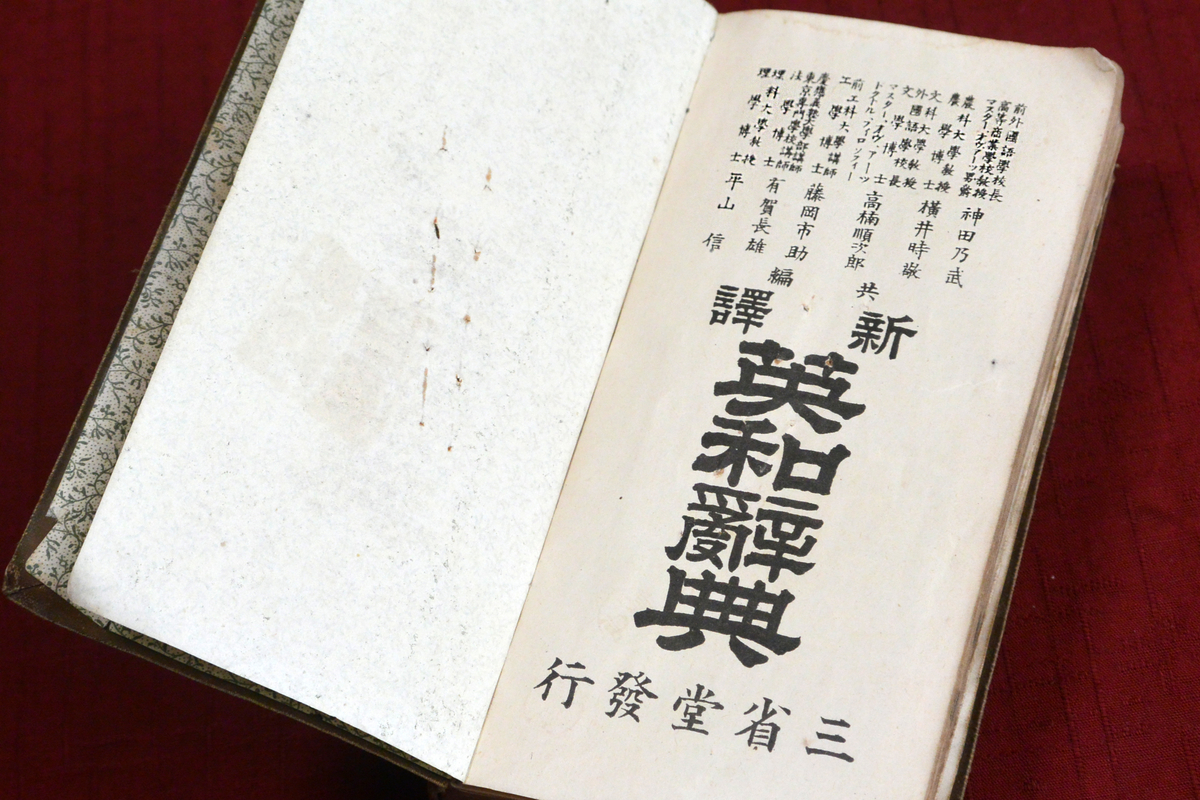 前外國語學校長
高等商業學校教授
マスター、オヴ、アーツ男爵
神田乃武
農科大學教授
農學博士
橫井時敬
文科大學教授
外國語學校長
文學博士
マスター、オヴ、アーツ
ドクトル、フィロソフィー
高楠順次郎
前工科大學講師
工學博士
藤岡市助
慶應義塾大學部講師
東京專門學校講師
法學博士
有賀長雄
理科大學教授
理學博士
平山信
共編
新譯
英和辭典
三省堂發行